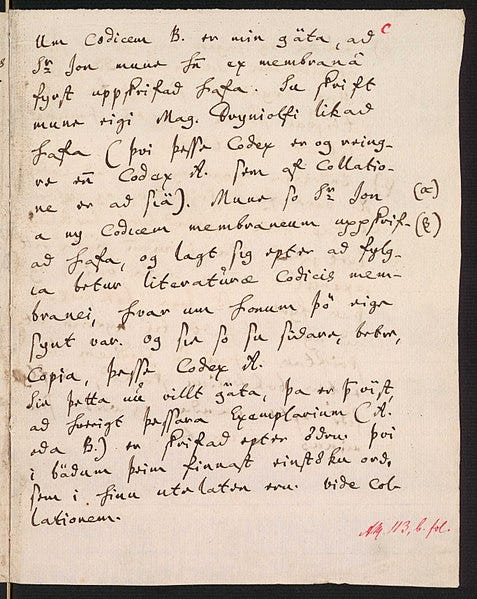 Um Codicem B. er min gäta, ad C
Sr Jon mune hn ex membranâ
fyrst uppskrifad hafa. Su skrift
mune eigi Mag. Bryniolfi likad
hafa (þvi þesse Codex er og reing-
re enn Codex A. sem af Collatio-
ne er ad siä). Mune so Sr Jon (α)
a ny Codicem membraneum uppskrif-
ad hafa, og lagt sig epter ad fylg-
ia betur literaturæ Codicis mem-
branei, hvar um honum þö eige
synt var. og sie so su sidare, betre,
Copia, þesse Codex A.
Sie þetta nu villt gäta, þa er þo vist,
ad hverigt þessara Exemplarium (A.
eda B.) er skrifad epter ödru. þvi
i bädum þeim finnast einstöku ord,
sem i hinu utelaten eru. vide Col-
lationem.
AM. 113, b. fol.